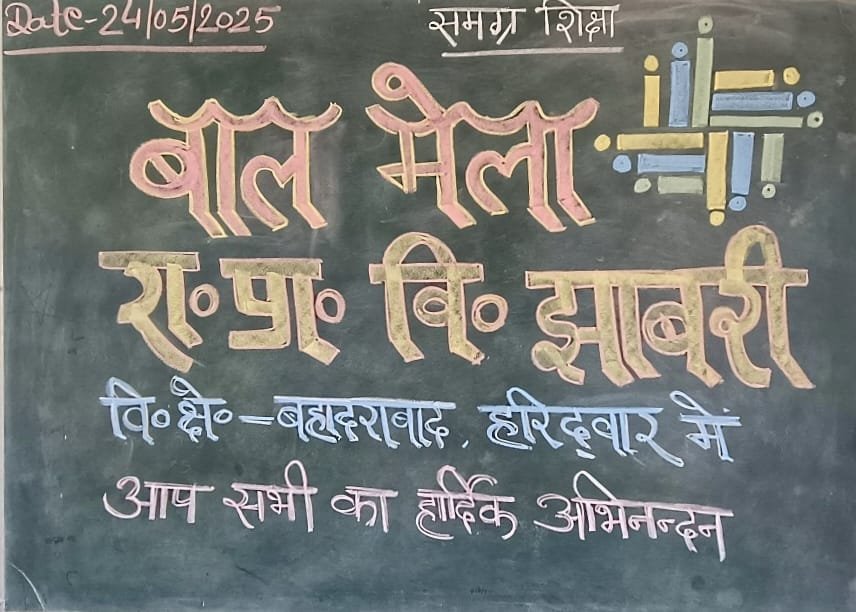 Date-24/05/2025
समग्र शिक्षा
बाल मेला
रा० प्रा० वि० झाबरी
वि० क्षे० - बहादराबाद, हरिद्वार में
आप सभी का हार्दिक अभिनन्दन